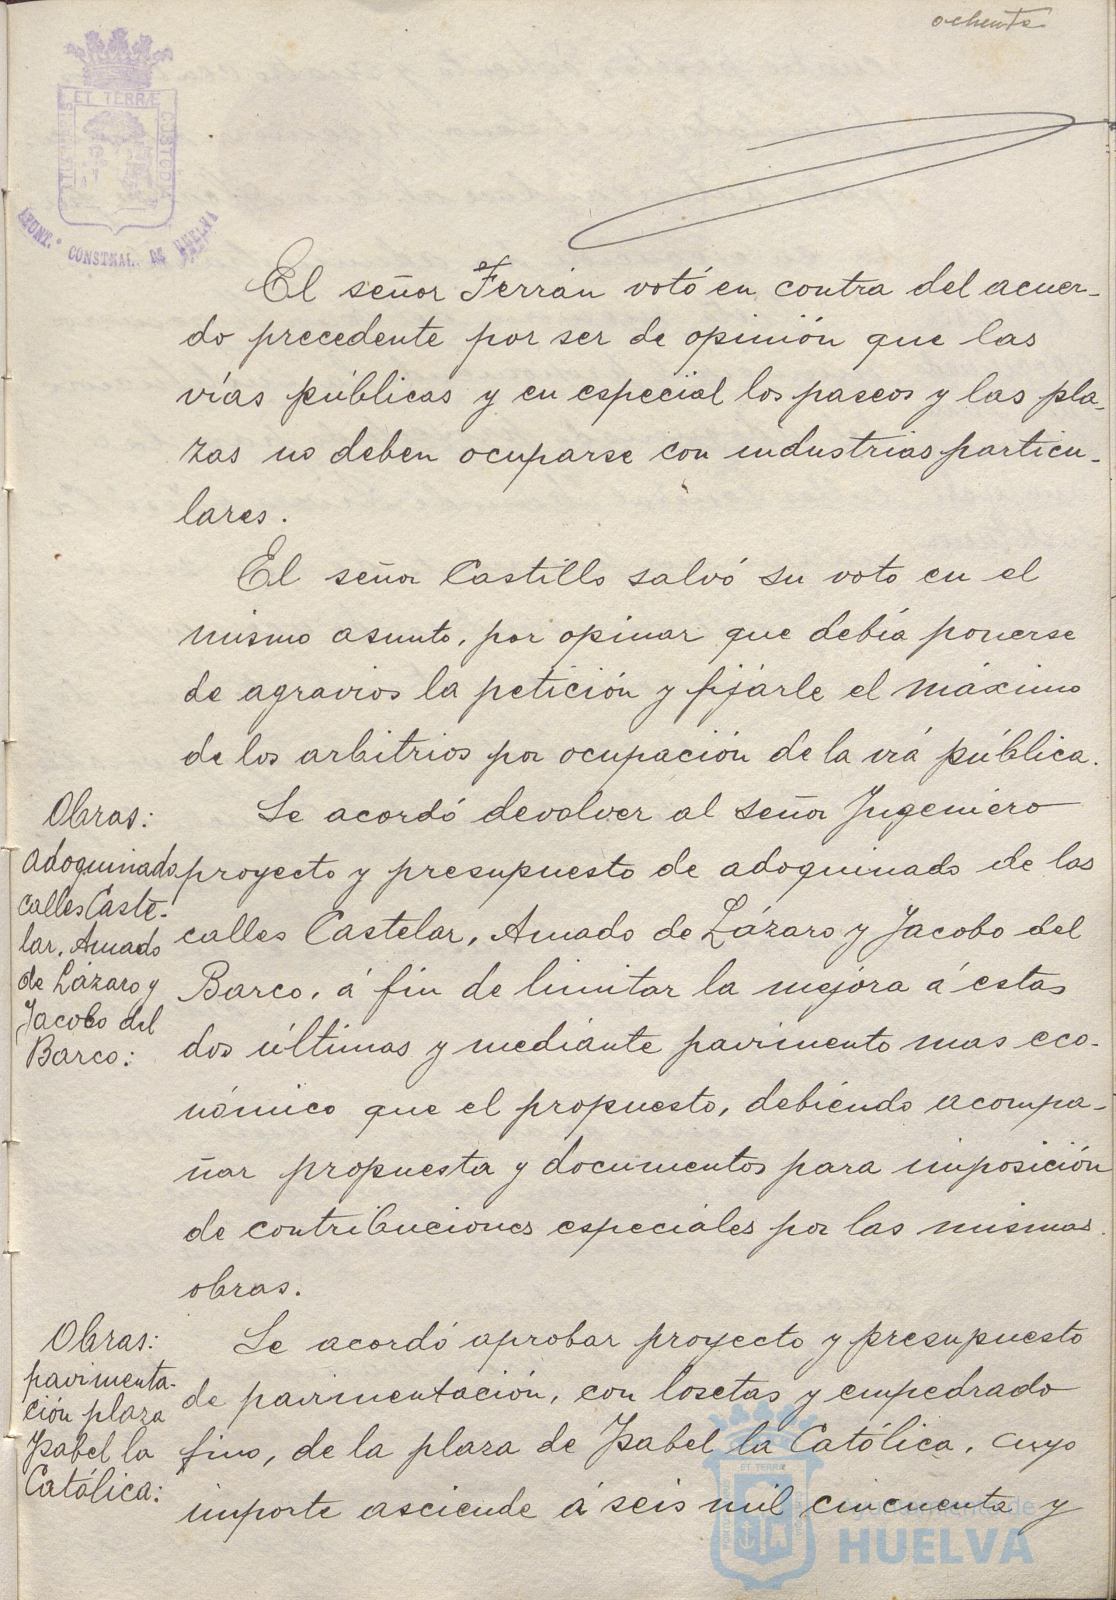 ochenta
ET TERRÆ
CUSTODIA
AYUNT.º CONSTNAL. DE HUELVA
El señor Ferrán votó en contra del acuer-
do precedente por ser de opinión que las
vías públicas y en especial los paseos y las pla-
zas no deben ocuparse con industrias particu-
lares.
El señor Castillo salvó su voto en el
mismo asunto, por opinar que debía ponerse
de agravios la petición y fijárle el máximo
de los arbitrios por ocupación de la vía pública.
Obras:
adoquinado
calles Caste-
lar, Amado
de Lázaro y
Jacobo del
Barco:
Se acordó devolver al señor Ingeniero
proyecto y presupuesto de adoquinado de las
calles Castelar, Amado de Lázaro y Jacobo del
Barco, á fin de limitar la mejora á estas
dos últimas y mediante pavimento mas eco-
nómico que el propuesto, debiendo acompa-
ñar propuesta y documentos para imposición
de contribuciones especiales por las mismas
obras.
Obras:
pavimenta-
ción plaza
Isabel la
Católica:
Se acordó aprobar proyecto y presupuesto
de pavimentación, con losetas y empedrado
fino, de la plaza de Isabel la Católica, cuyo
importe asciende á seis mil cincuenta y
ET TERRÆ
Ayuntamiento de
HUELVA